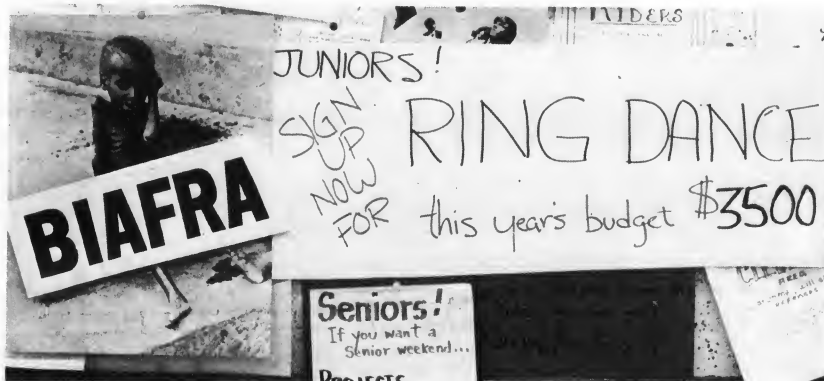 BIAFRA
JUNIORS!
SIGN
UP
NOW
FOR
RING DANCE
this year's budget $3500
Seniors!
If you want a
Senior weekend...
PROJECTS